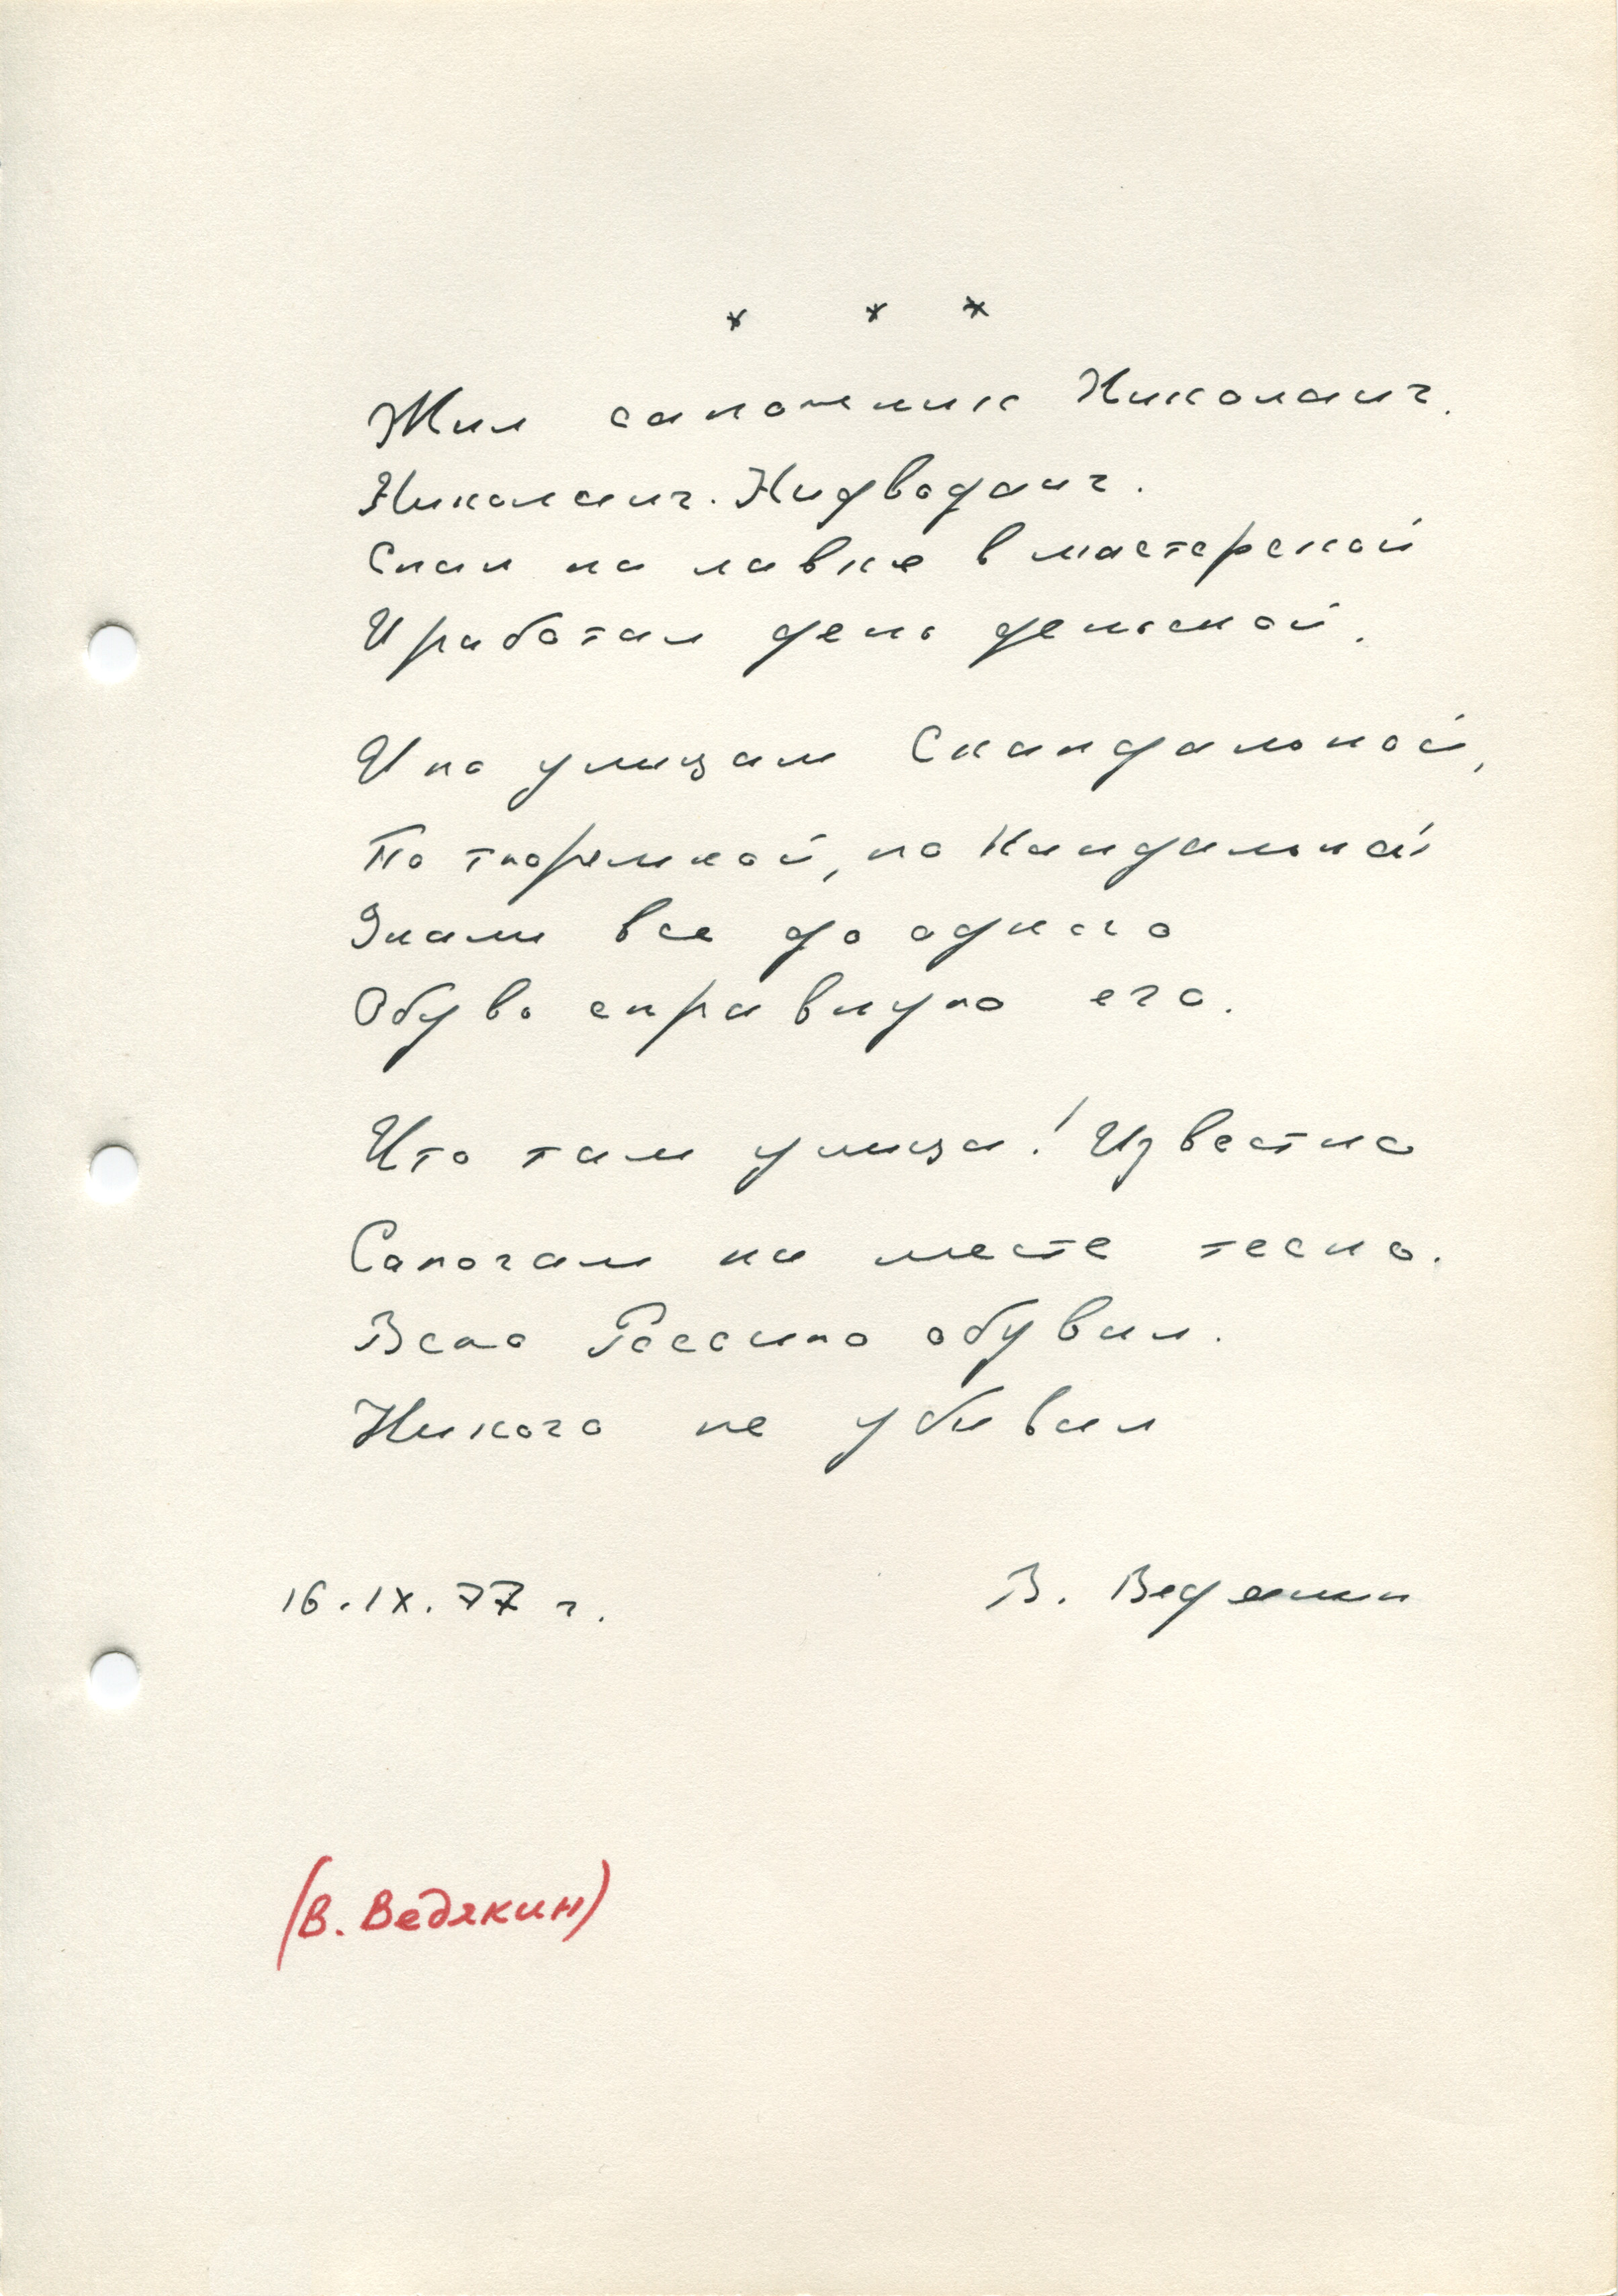 * * *
Жил сапожник Николаич.
Николаич.
Спал на лавке в мастерской
И работал день деньской.
И по улицам Скандальной,
По тюремной, по Кандальной
Знали все до одного
Обувь справную его.
Что там улица! Известно
Сапогам на месте тесно.
Всю Россию обувал.
Никого не убивал
16.IX.77 г.
В. Ведякин
(В. Ведякин)